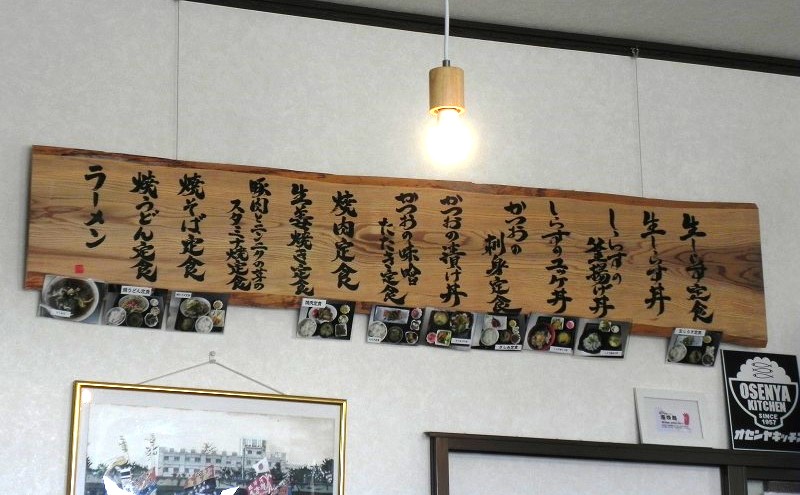 生しらす定食
生しらす丼
しらすの
釜揚げ丼
しらすの二ヶ丼
かつおの
刺身定食
かつおの漬け丼
かつおの味噌
たたき定食
焼肉定食
生姜焼き定食
豚肉とニンニクの芽の
スタミナ焼定食
焼そば定食
焼うどん定食
ラーメン
焼うどん定食
焼肉定食
OSENYA
KITCHEN
SINCE
1957
オセンヤキッチン